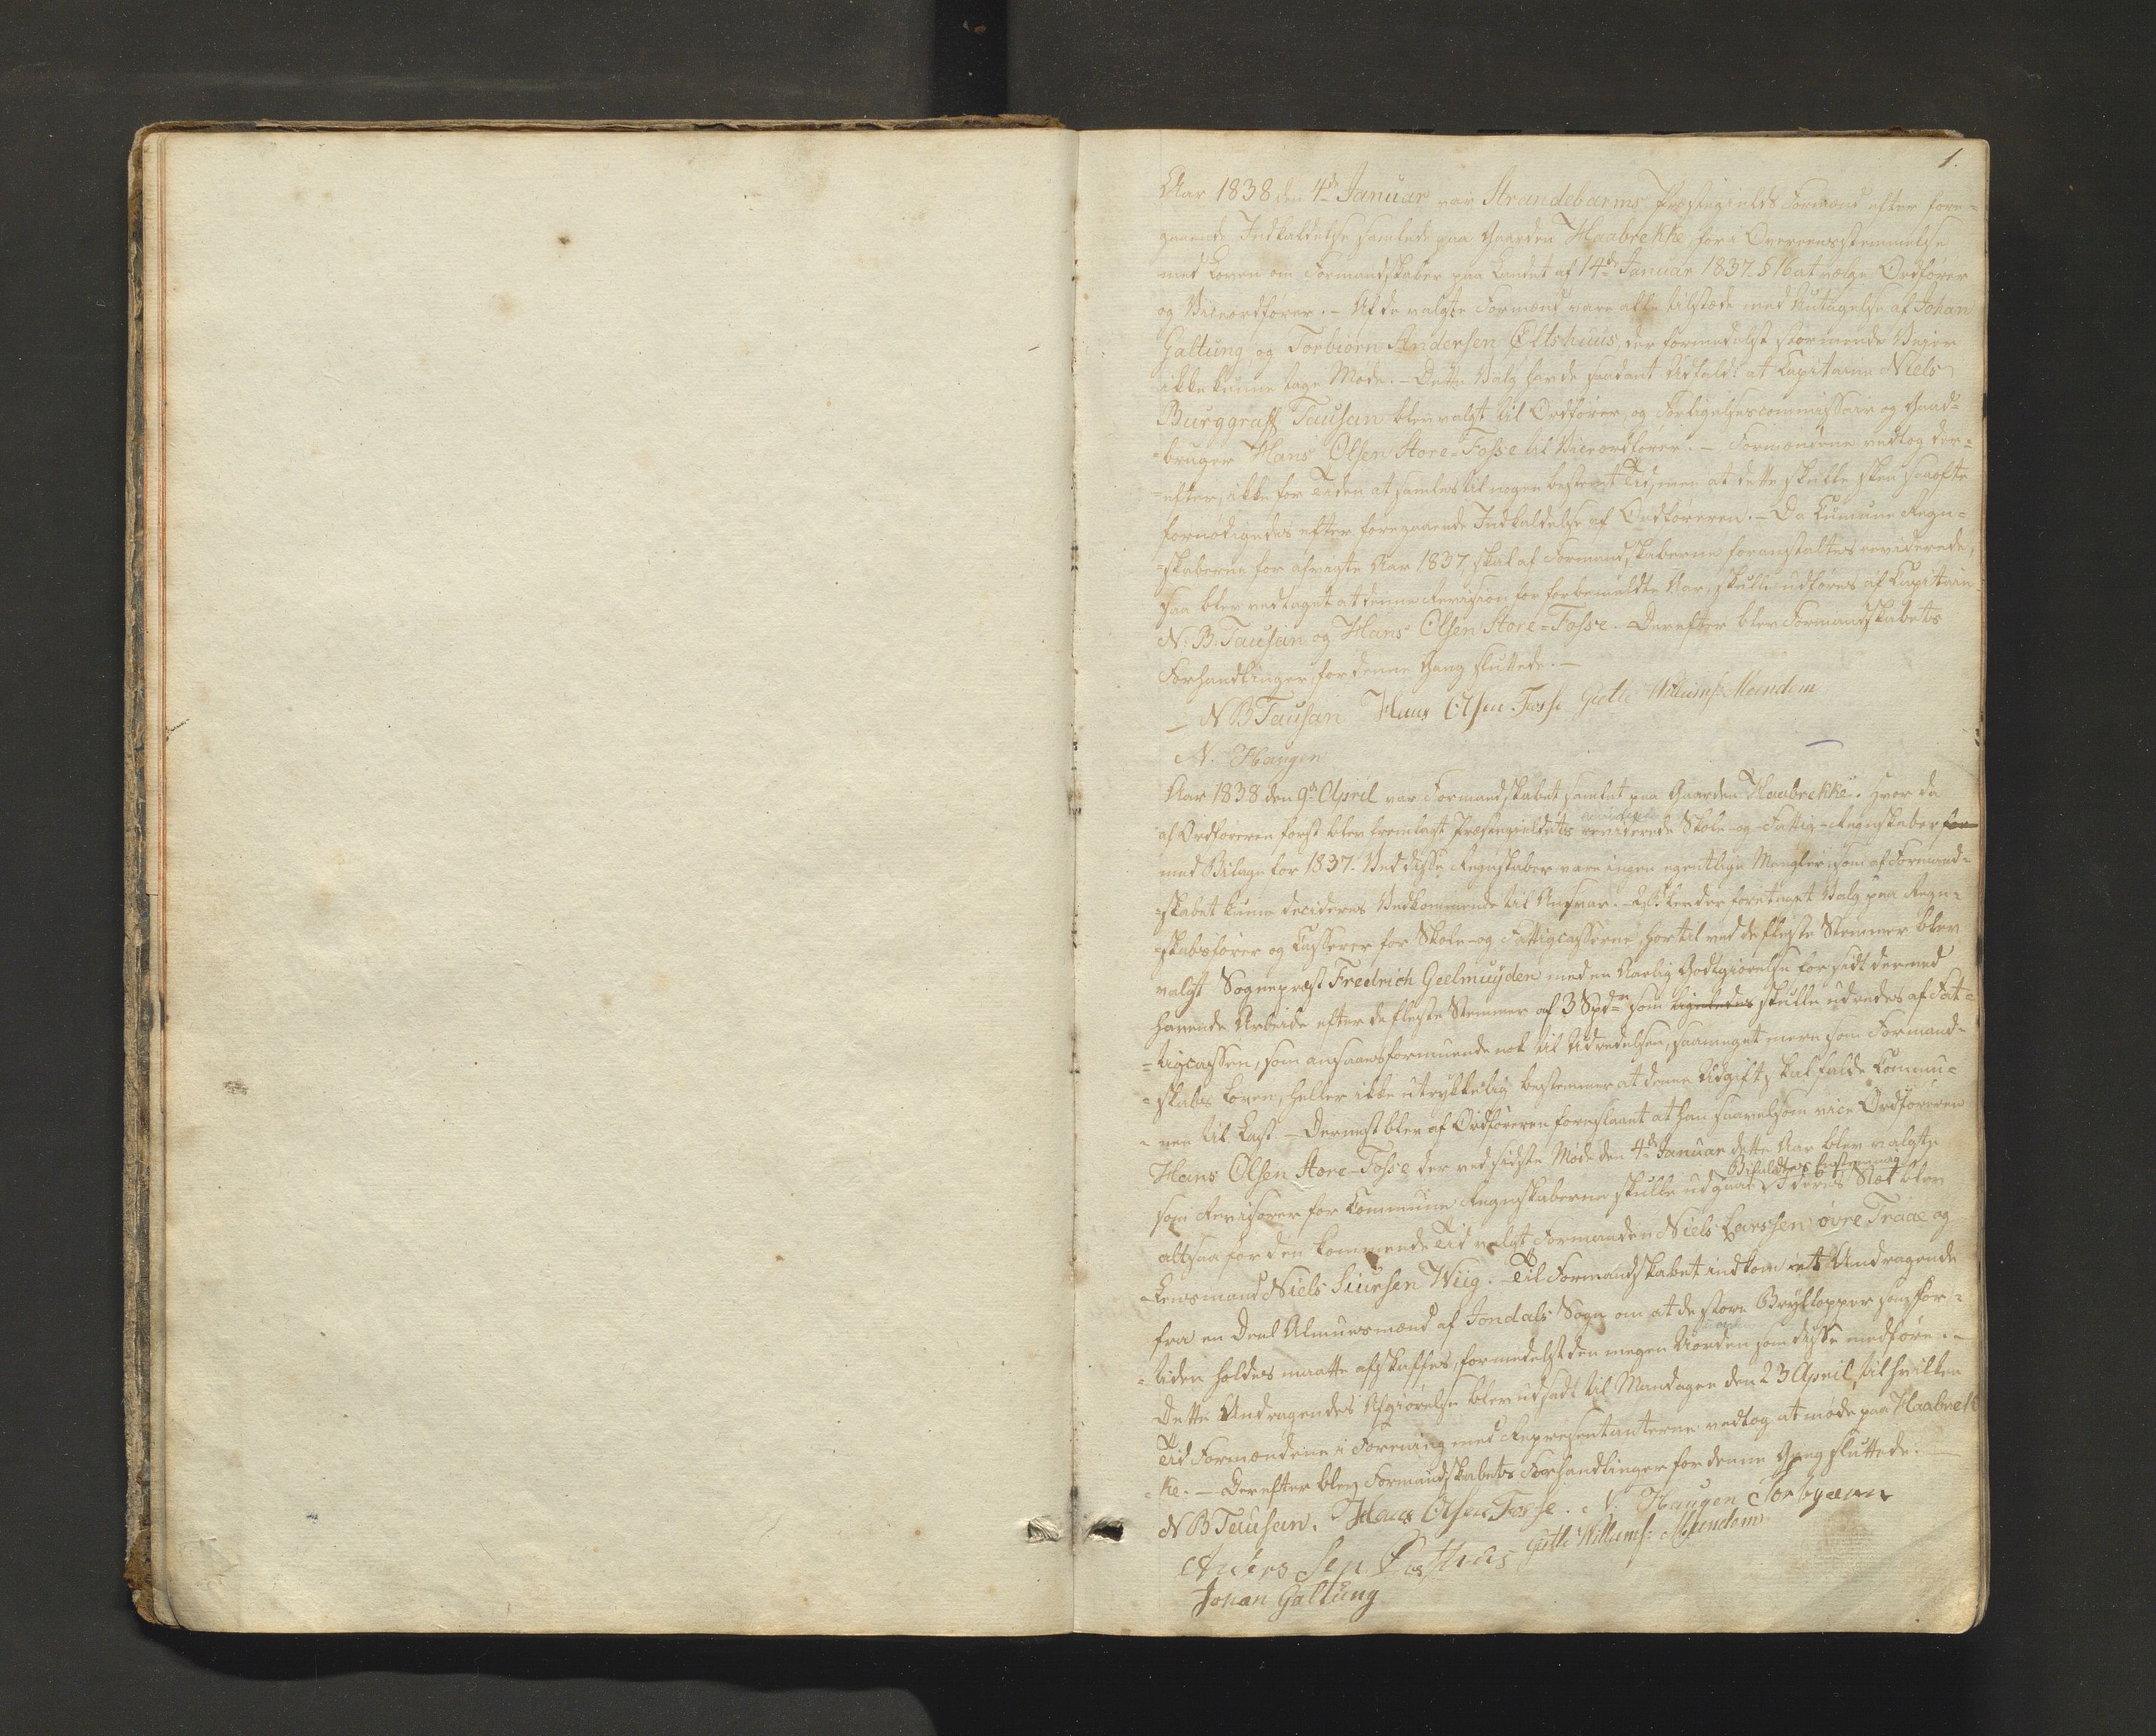 1.
Aar 1838 den 4de Januar var Strandebarms Præstegields Formænd efter fore=
gaaende Indkaldelse samlede paa Gaarden Haabrekke for i Overeensstemmelse
med Loven om Formandskaber paa Landet af 14de Januar 1837 § 16 at vælge Ordfører
og Viceordfører. – Af de valgte Formænd vare alle tilstæde med Undtagelse af Johan
Galtung og Torbiørn Andersen Østhuus, der formedelst stormende Veier
ikke kunne tage Møde. – Dette Valg havde saadant Udfald: at Capitaine Niels
Burggraff Tausan blev valgt til Ordfører, og Forligelsescommissair og Gaard=
=bruger Hans Olsen Store-Fosse til Viceordfører. – Formændene vedtog der=
=efter, ikke for Tiden at samles til nogen bestemt Tid, men at dette skulle skee saaofte
fornødigedes efter foregaaende Indkaldelse af Ordføreren. – Da Kumune Regn=
=skaberne for afvigte Aar 1837, skal af Formandskaberne foranstaltes reviderede,
saa blev vedtaget at denne Revision for forbemeldte Aar, skulle udføres af Capitain
N. B. Tausan og Hans Olsen Store=Fosse. Derefter blev Formandskabets
Forhandlinger, for denne Gang sluttede. –
N B Tausan Hans Olsen Fosse Gutle Willumsen Mundem
N. Haugen
Aar 1838 den 9de April var Formandskabet samlet paa Gaarden Haabrekke. Hvor da
af Ordføreren først blev fremlagt Præstegieldets reviderede Skole- og Fattig-Regnskaber for
med Bilage for 1837. Ved disse Regnskaber vare ingen egentlige Mangler, som af Formand=
=skabet kunne decideres Vedkommende til Ansvar. – blev der foretaget Valg paa Regn=
=skabsfører og Casserer for Skole- og Fattigcasserne, hertil ved de fleste Stemmer blev
valgt Sognepræst Fredrich Geelmuyden med en Aarlig Godtgiørelse for sidt dermed
havende Arbeide efter de fleste Stemmer af 3 Spdr som ligeledes skulle udredes af Fat=
=tigcassen, som ansaaes formuende nok til Udredelsen, saameget mere som Formand=
=skabs Loven, heller ikke udtrykkelig bestemmer at denne Udgift skal falde Commu=
=nen til Last. – Dernæst blev af Ordføreren foreslaaet at han saavelsom vice Ordføreren
Hans Olsen Store-Fosse der ved sidste Møde den 4de Januar dette Aar blev valgte
som Revisorer for Commune Regnskaberne skulle udgaae I deres Stæd blev
altsaa for den kommende Tid valgt Formanden Niels Larssen øvre Traae og
=Lensmand Niels Siursen Wiig. – Til Formandskabet indkom et Andragende
fra en Deel Almuesmænd af Jondals Sogn om at de store Brylloper som for=
=tiden holdes maatte afskaffes, formedelst den megen Uorden som disse medføre. –
Dette Andragendes Afgiørelse blev udsadt til Mandagen den 23 April, til hvilken
Tid Formændene i Forening med Representanterne vedtog at møde paa Haabrek
=ke. – Derefter blev Formandskabets Forhandlinger for denne Gang sluttede. –
N B Tausan. Hans Olsen Fosse. N. Haugen Torbyørn
Anders sen Østhus Gutle Willums: Mundem
Johan Galtung